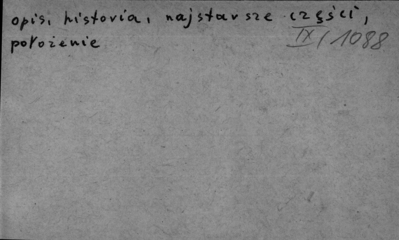 opis, historia, najstarsze części,
położenie
IX/1088